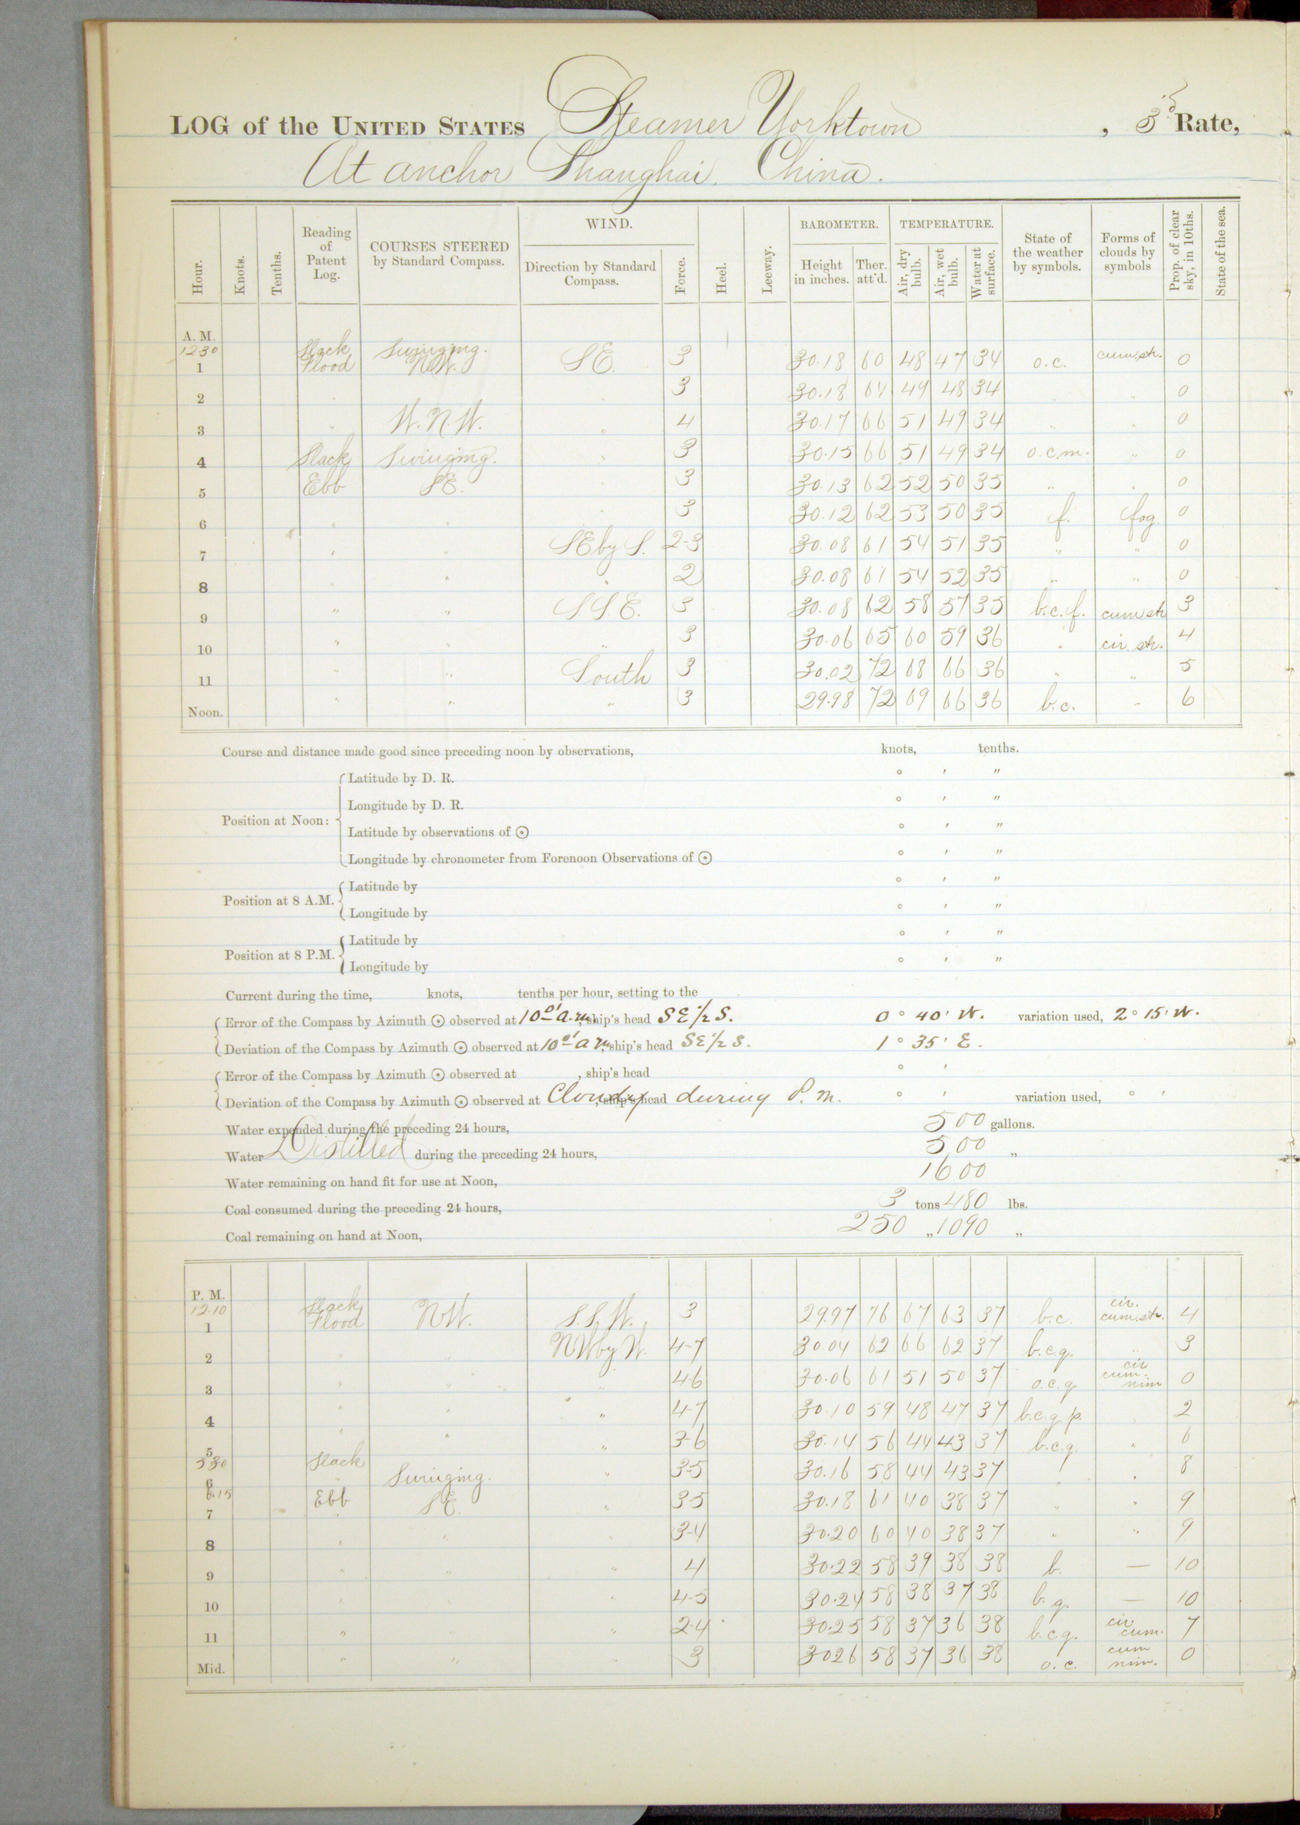 LOG of the UNITED STATES Steamer Yorktown, 3d Rate,
At anchor Shanghai. China.
Hour. Knots. Tenths. Reading of Patent Log. COURSES STEERED by Standard Compass. WIND. Direction by Standard Compass. Force. Heel. Leeway. BAROMETER. Height in inches. Ther. att'd. TEMPERATURE. Air, dry bulb. Air, wet bulb. Water at surface. State of the weather by symbols. Forms of clouds by symbols Prop. of clear sky, in 10ths. State of the sea.
A. M.
12 30 Slack Swinging.
1 Flood N.W. SE. 3 30.18 60 48 47 34 o.c. cum.str. 0
2 " " 3 30.18 64 49 48 34 " " 0
3 " W.N.W. " 4 30.17 66 51 49 34 " " 0
4 Slack Swinging. " 3 30.15 66 51 49 34 o.c.m. " 0
5 Ebb SE. " 3 30.13 62 52 50 35 " " 0
6 " " " 3 30.12 62 53 50 35 f. fog 0
7 " " SE by S. 2-3 30.08 61 54 51 35 " " 0
8 " " " 2 30.08 61 54 52 35 " " 0
9 " " S.S.E. 3 30.08 62 58 57 35 b.c.f. cum str 3
10 " " " 3 30.06 65 60 59 36 " cir. str. 4
11 " " South 3 30.02 72 68 66 36 " " 5
Noon. " " " 3 29.98 72 69 66 36 b.c. " 6
Course and distance made good since preceding noon by observations, knots, tenths.
Position at Noon:
Latitude by D. R. ° ′ ″
Longitude by D. R. ° ′ ″
Latitude by observations of ☉ ° ′ ″
Longitude by chronometer from Forenoon Observations of ☉ ° ′ ″
Position at 8 A.M.
Latitude by ° ′ ″
Longitude by ° ′ ″
Position at 8 P.M.
Latitude by ° ′ ″
Longitude by ° ′ ″
Current during the time, knots, tenths per hour, setting to the
Error of the Compass by Azimuth ☉ observed at 10 01 a.m., ship's head SE ½ S. 0° 40′ W. variation used, 2° 15′ W.
Deviation of the Compass by Azimuth ☉ observed at 10 01 a m, ship's head SE ½ S. 1° 35′ E.
Error of the Compass by Azimuth ☉ observed at , ship's head ° ′
Deviation of the Compass by Azimuth ☉ observed at Cloudy, ship's head during P.m. ° ′ variation used, ° ′
Water expended during the preceding 24 hours, 500 gallons.
Water Distilled during the preceding 24 hours, 500 "
Water remaining on hand fit for use at Noon, 1600
Coal consumed during the preceding 24 hours, 3 tons 480 lbs.
Coal remaining on hand at Noon, 250 " 1090 "
P. M.
12.10 Slack
1 Flood NW. S.S.W. 3 29.97 76 67 63 37 b.c. cir. cum.str. 4
2 " " NW by W. 4-7 30.04 62 66 62 37 b.c.q. " 3
3 " " " 4-6 30.06 61 51 50 37 o.c.q. cir cum- nim 0
4 " " " 4-7 30.10 59 48 47 37 b.c.q.p. " 2
5 " " " 3-6 30.14 56 44 43 37 b.c.q. " 6
5 30 Slack
6 " Swinging. " 3-5 30.16 58 44 43 37 " " 8
6.15
7 Ebb SE. " 3-5 30.18 61 40 38 37 " " 9
8 " " " 3-4 30.20 60 40 38 37 " " 9
9 " " " 4 30.22 58 39 38 38 b. — 10
10 " " " 4-5 30.24 58 38 37 38 b.q. — 10
11 " " " 2-4 30.25 58 37 36 38 b.c.q. cir cum. 7
Mid. " " " 3 30.26 58 37 36 38 o.c. cum nim. 0